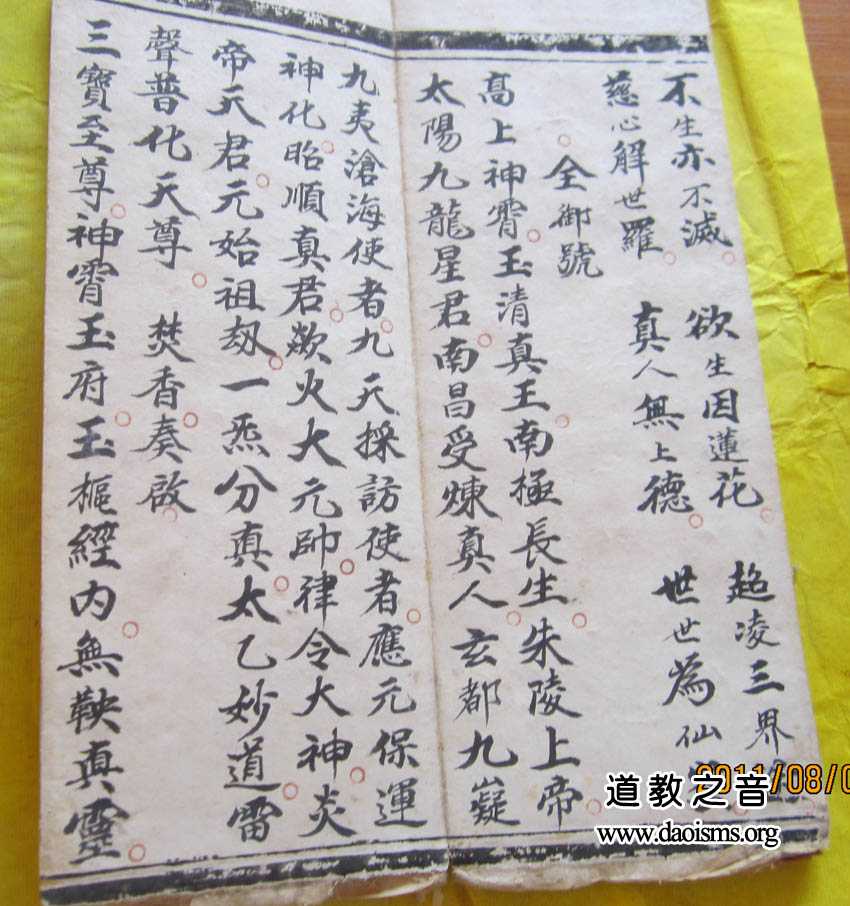 不生亦不滅 欲生因蓮花 超凌三界
慈心解世羅 真人無上德 世世為仙
全御號
高上神霄玉清真王南極長生朱陵上帝
太陽九龍星君南昌受煉真人玄都九嶷
九夷滄海使者九天採訪使者應元保運
神化昭順真君歘火大元帥律令大神炎
帝天君元始祖刼一炁分真太乙妙道雷
聲普化天尊 焚香奏啟
三寶至尊神霄玉府玉樞經內無鞅真靈
2011/08/0
道教之音
www.daoisms.org